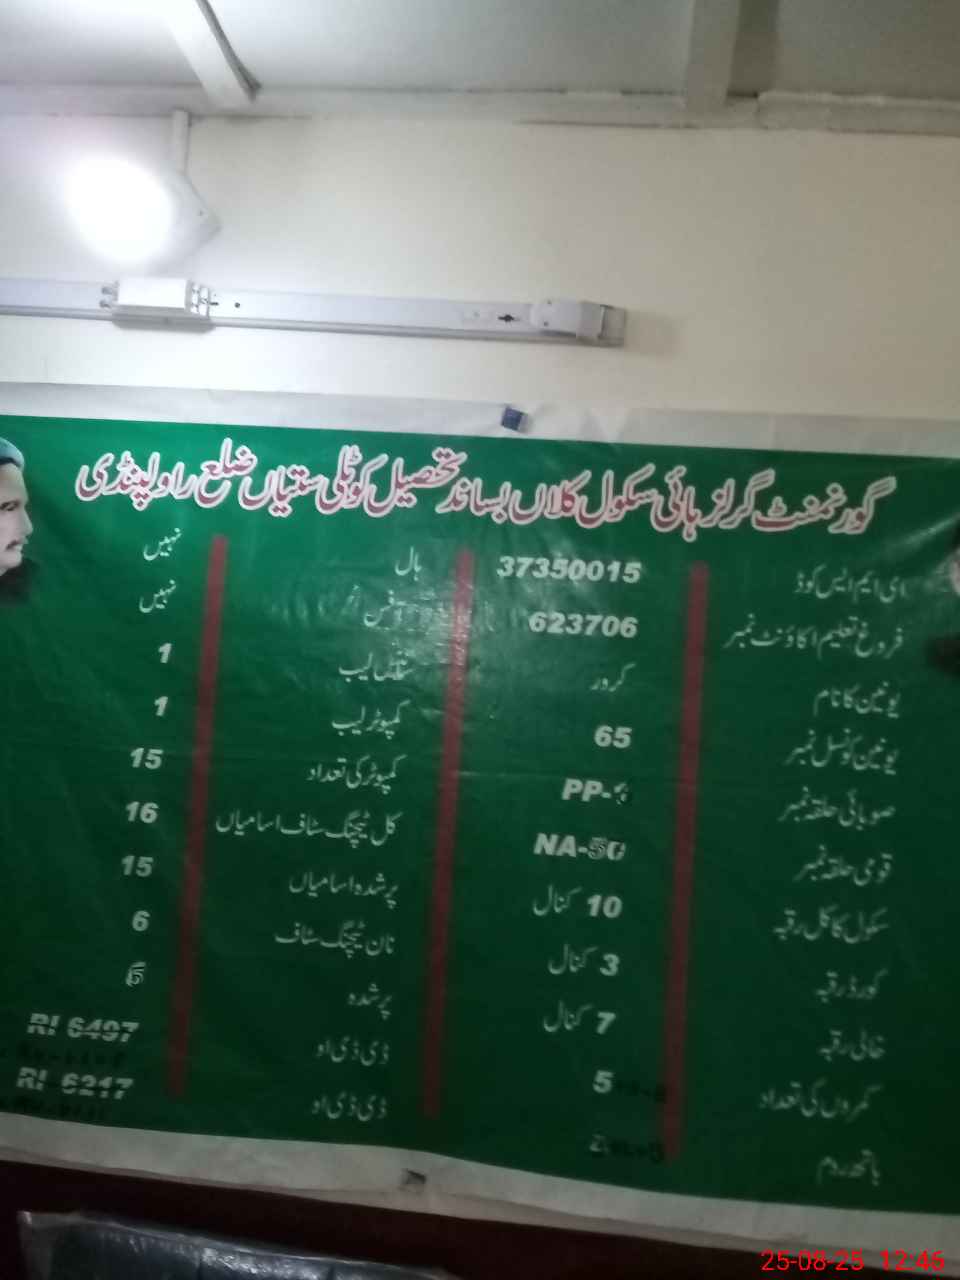 گورنمنٹ گرلز ہائی سکول کلاں بساند تحصیل کوٹلی ستیاں ضلع راولپنڈی
ای ایم ایس کوڈ 37350015
فروغ تعلیم اکاؤنٹ نمبر 623706
یونین کا نام کرور
یونین کونسل نمبر 65
صوبائی حلقہ نمبر PP-
قومی حلقہ نمبر NA-50
سکول کا کل رقبہ 10 کنال
کورڈ رقبہ 3 کنال
خالی رقبہ 7 کنال
کمروں کی تعداد 5
باتھ روم
ہال نہیں
آفس نہیں
سائنس لیب 1
کمپوٹر لیب 1
کمپوٹر کی تعداد 15
کل ٹیچنگ سٹاف اسامیاں 16
پر شدہ اسامیاں 15
نان ٹیچنگ سٹاف 6
پر شدہ
ڈی ڈی او RI 6497
ڈی ڈی او RI 6217
25-08-25 12:46